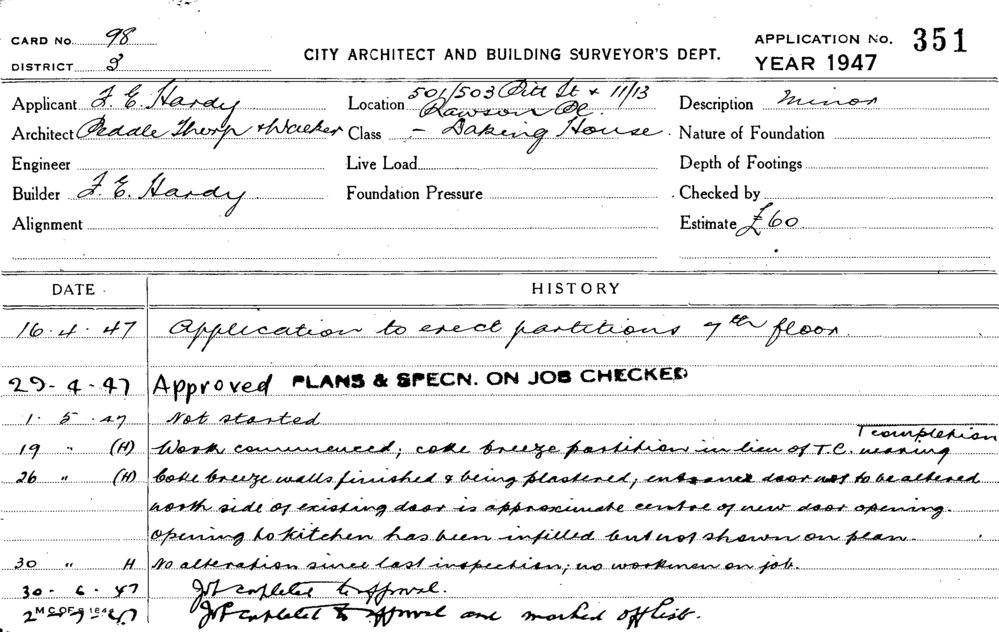 CARD No. 98
DISTRICT 3
CITY ARCHITECT AND BUILDING SURVEYOR'S DEPT.
APPLICATION No. 351
YEAR 1947
Applicant F. E. Hardy
Location 501/503 Pitt St & 11/13
Rawson Pl.
Description Minor
Architect Peddle Thorp & Walker
Class – Daking House.
Nature of Foundation
Engineer
Live Load
Depth of Footings
Builder F. E. Hardy
Foundation Pressure
Checked by
Alignment
Estimate £60
DATE
HISTORY
16. 4. 47 Application to erect partitions 7th floor.
29. 4. 47 Approved PLANS & SPECN. ON JOB CHECKED
1. 5. 47 Not started
19 " (H) Work commenced; coke breeze partition in lieu of T.C. nearing completion
26 " (H) Coke breeze walls finished & being plastered; entrance door not to be altered
north side of existing door is approximate centre of new door opening.
Opening to kitchen has been infilled but not shown on plan.
30 " H No alteration since last inspection; no workmen on job.
30. 6. 47 Job completed to approval.
2 7 47 Job completed to approval and marked off list.